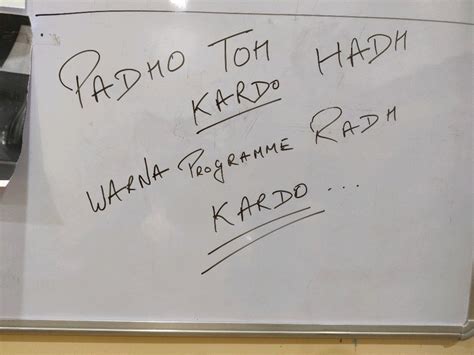 PADHO TOH HADH
KARDO
WARNA PROGRAMME RADH
KARDO ...